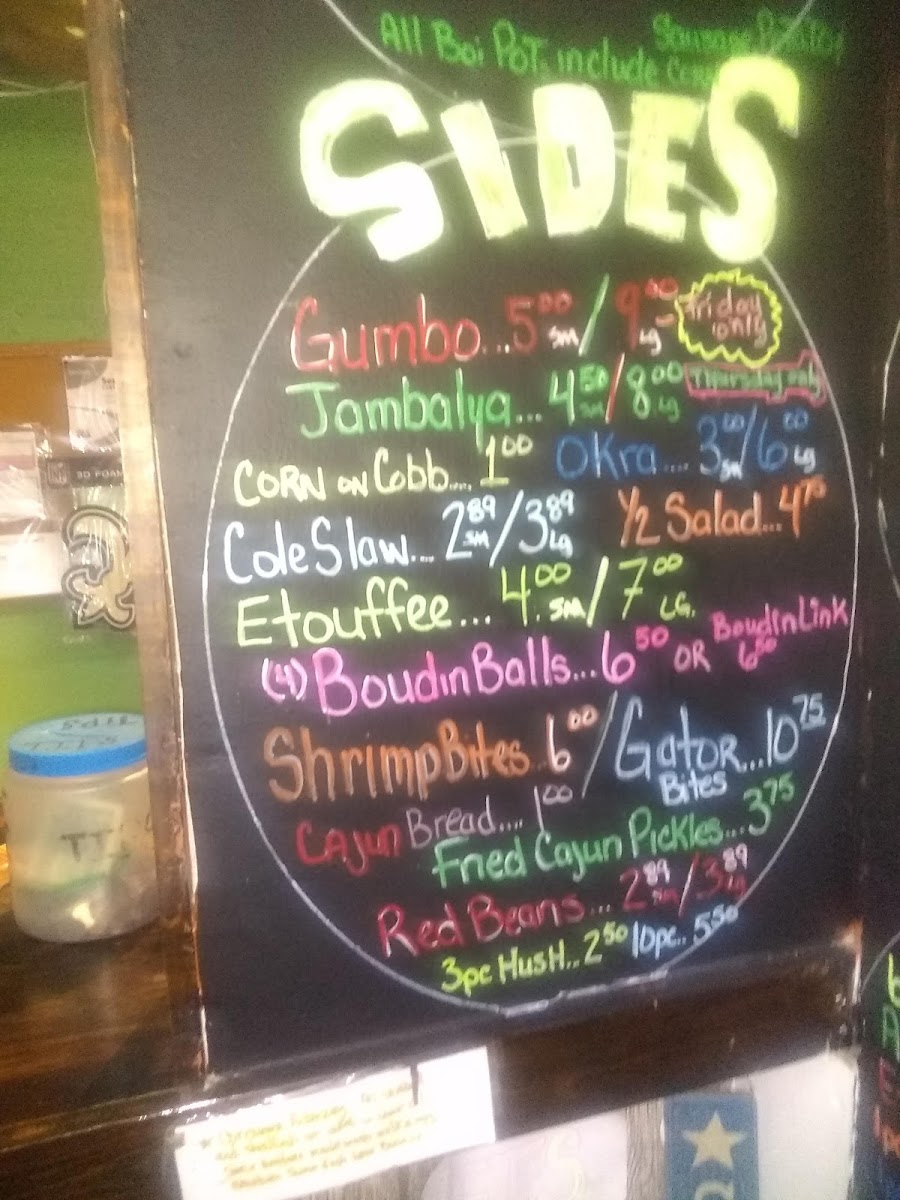 All Boi Pot. include Sausage Potatoe
Corn
SIDES
Gumbo...5.00 sm / 9.00 Lg friday only
Jambalya... 4.50 sm / 8.00 Lg Thursday only
CORN ON Cobb.... 1.00 OKra.... 3.00 sm / 6.00 Lg
Cole Slaw.... 2.89 sm / 3.89 Lg ½ Salad...4.75
Etouffee... 4.00 sm / 7.00 LG.
(4) Boudin Balls...6.50 OR Boudin Link 6.50
Shrimp Bites..6.00 / Gator Bites...10.75
Cajun Bread.... 1.00
Fried Cajun Pickles...3.75
Red Beans... 2.89 sm / 3.89 Lg
3pc HusH.. 2.50 10pc.. 5.50
TIPS
3D FOAM